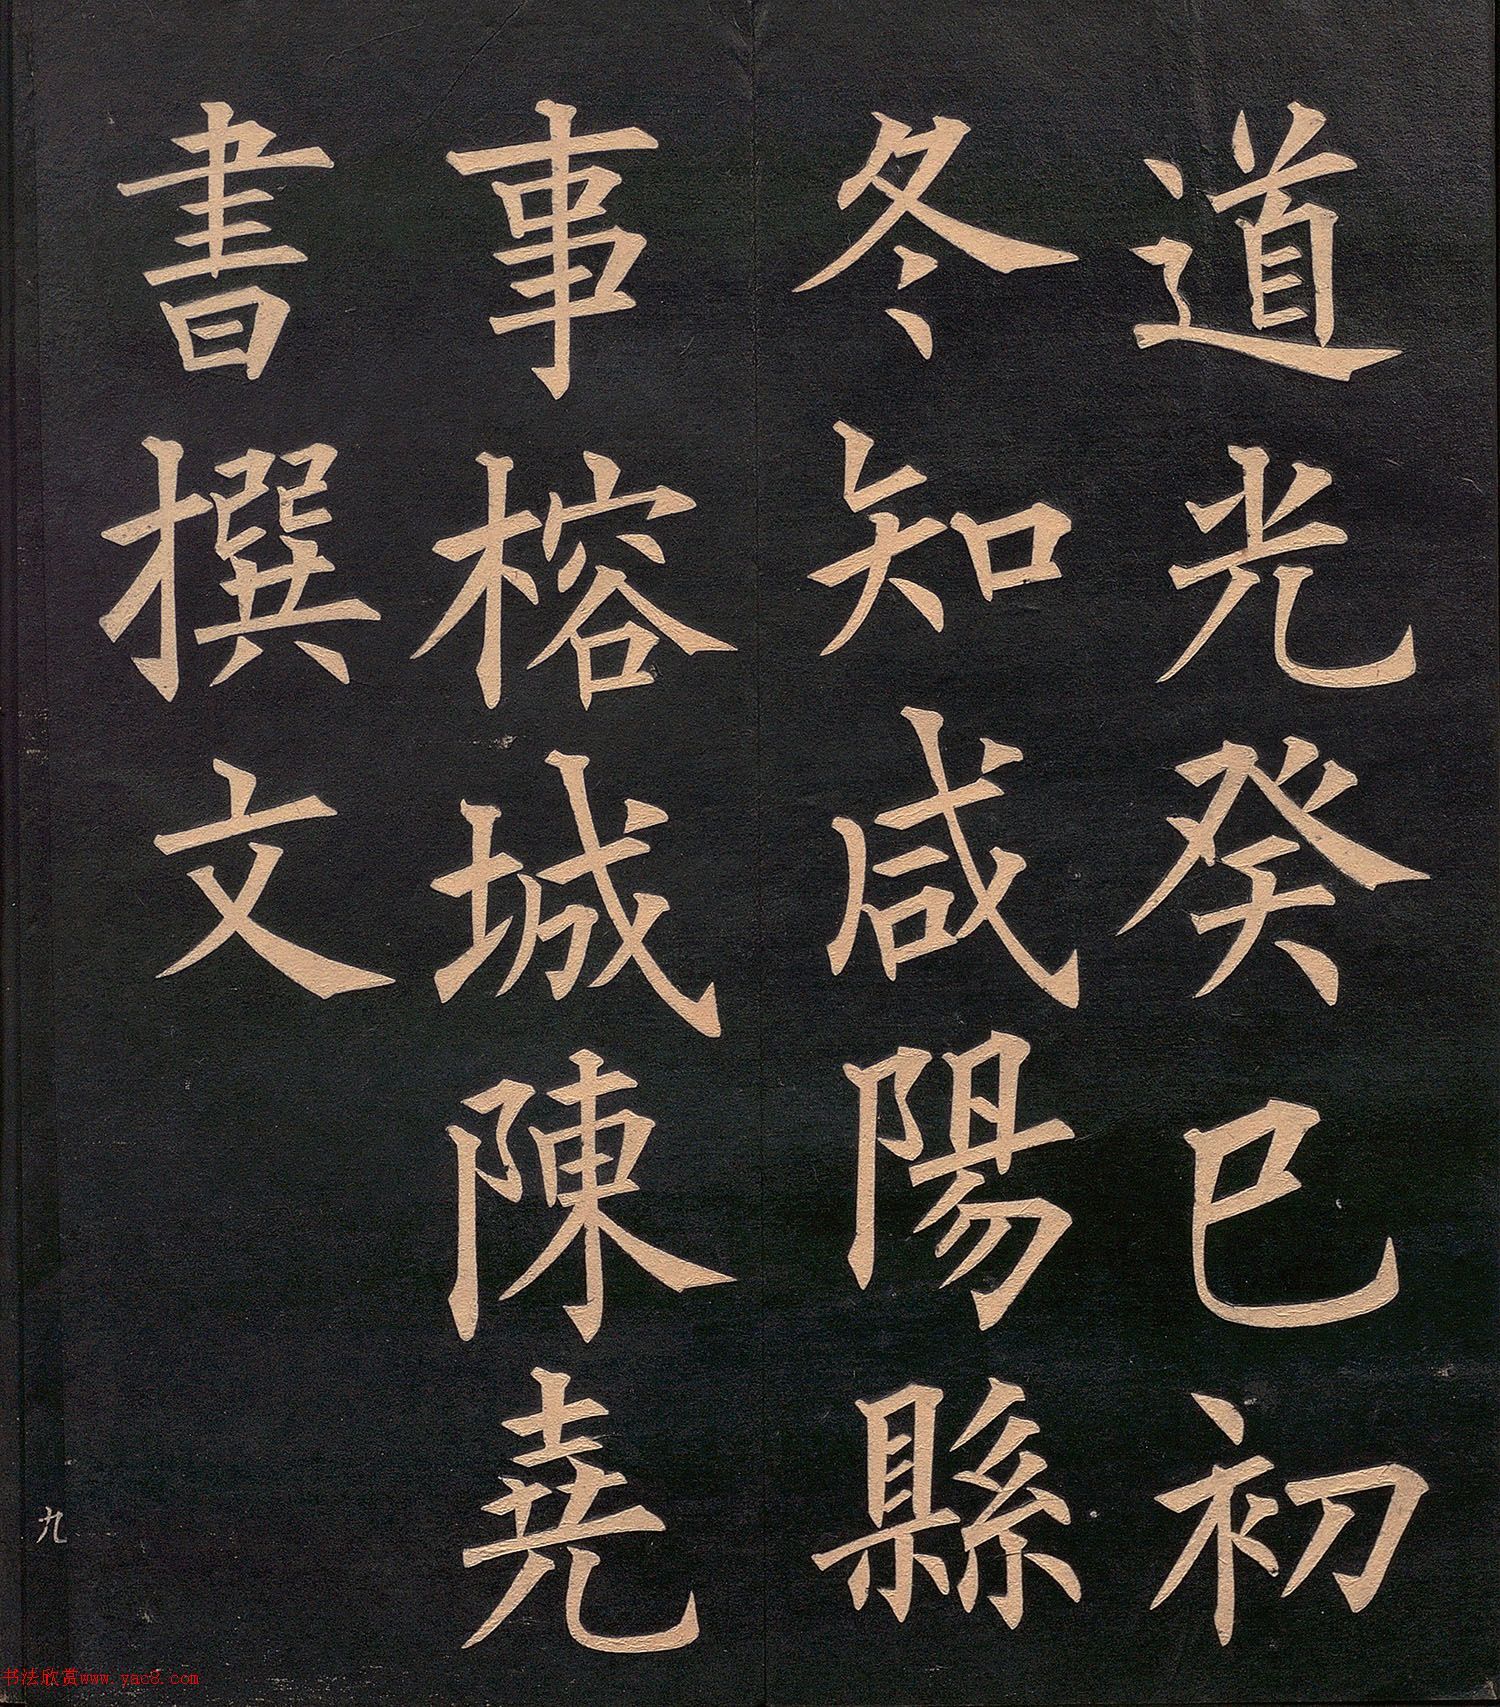 道光癸巳初
冬知咸陽縣
事榕城陳堯
書撰文
九
书法欣赏www.yac8.com